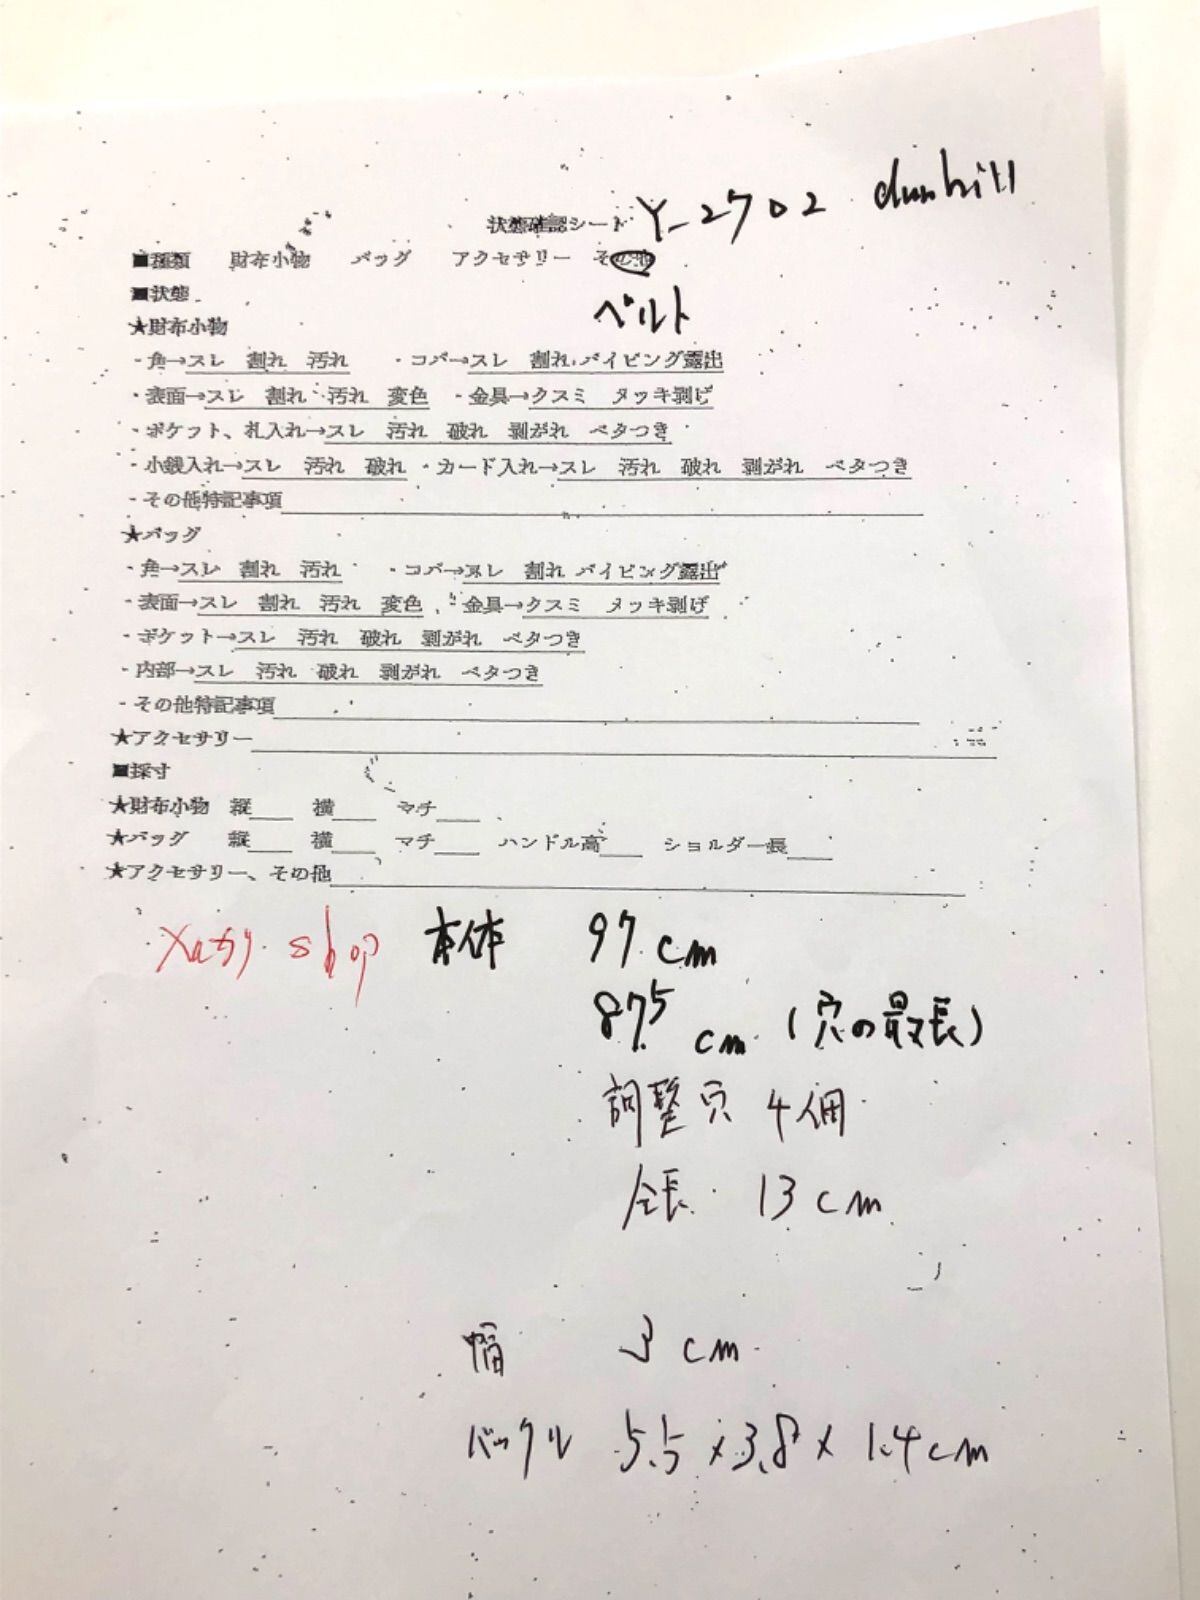 状態確認シート Y-2702 dunhill
■種類 財布小物 バッグ アクセサリー その他
■状態 ベルト
★財布小物
・角→スレ 割れ 汚れ ・コバ→スレ 割れ パイピング露出
・表面→スレ 割れ 汚れ 変色 ・金具→クスミ メッキ剥げ
・ポケット、札入れ→スレ 汚れ 破れ 剥がれ ベタつき
・小銭入れ→スレ 汚れ 破れ ・カード入れ→スレ 汚れ 破れ 剥がれ ベタつき
・その他特記事項
★バッグ
・角→スレ 割れ 汚れ ・コバ→スレ 割れ パイピング露出
・表面→スレ 割れ 汚れ 変色 ・金具→クスミ メッキ剥げ
・ポケット→スレ 汚れ 破れ 剥がれ ベタつき
・内部→スレ 汚れ 破れ 剥がれ ベタつき
・その他特記事項
★アクセサリー
■採寸
★財布小物 縦 横 マチ
★バッグ 縦 横 マチ ハンドル高 ショルダー長
★アクセサリー、その他
shop 本体 97cm
87.5cm (穴の最長)
調整穴 4個
全長 13cm
幅 3cm
バックル 5.5×3.8×1.4cm